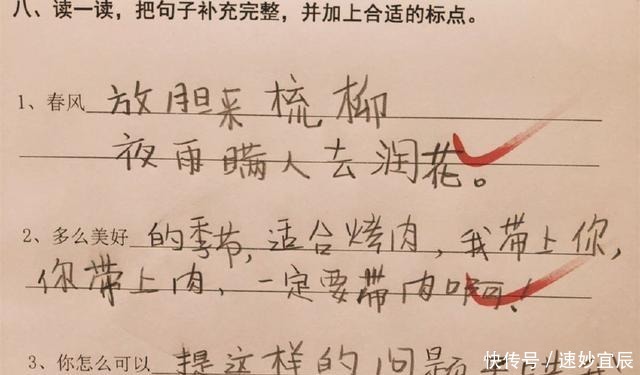 八、读一读，把句子补充完整，并加上合适的标点。
1、春风 放胆来梳柳
夜雨瞒人去润花。
2、多么美好 的季节，适合烤肉，我带上你，
你带上肉，一定要带肉啊！
3、你怎么可以 提这样的问题
快传号／速妙宜辰